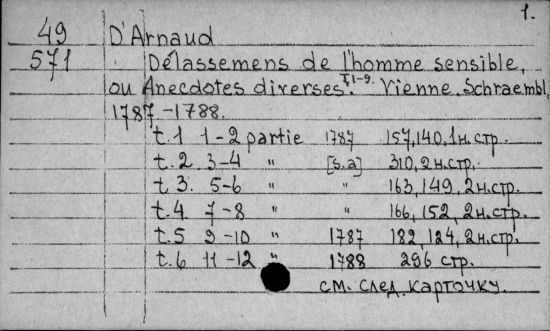 1.
49 D'Arnaud
571 Délassemens de l'homme sensible,
ou Anecdotes diverses. T.1-9. Vienne. Schraembl,
1787-1788.
t.1 1-2 partie 1787 157,140,1н.стр.
t.2 3-4 " [s.a] 310,2н.стр.
t.3. 5-6 " " 163,149,2н.стр.
t.4. 7-8 " " 166,152,2н.стр.
t.5 9-10 " 1787 182,124,2н.стр.
t.6 11-12 " 1788 296 стр.
см. след. карточку.